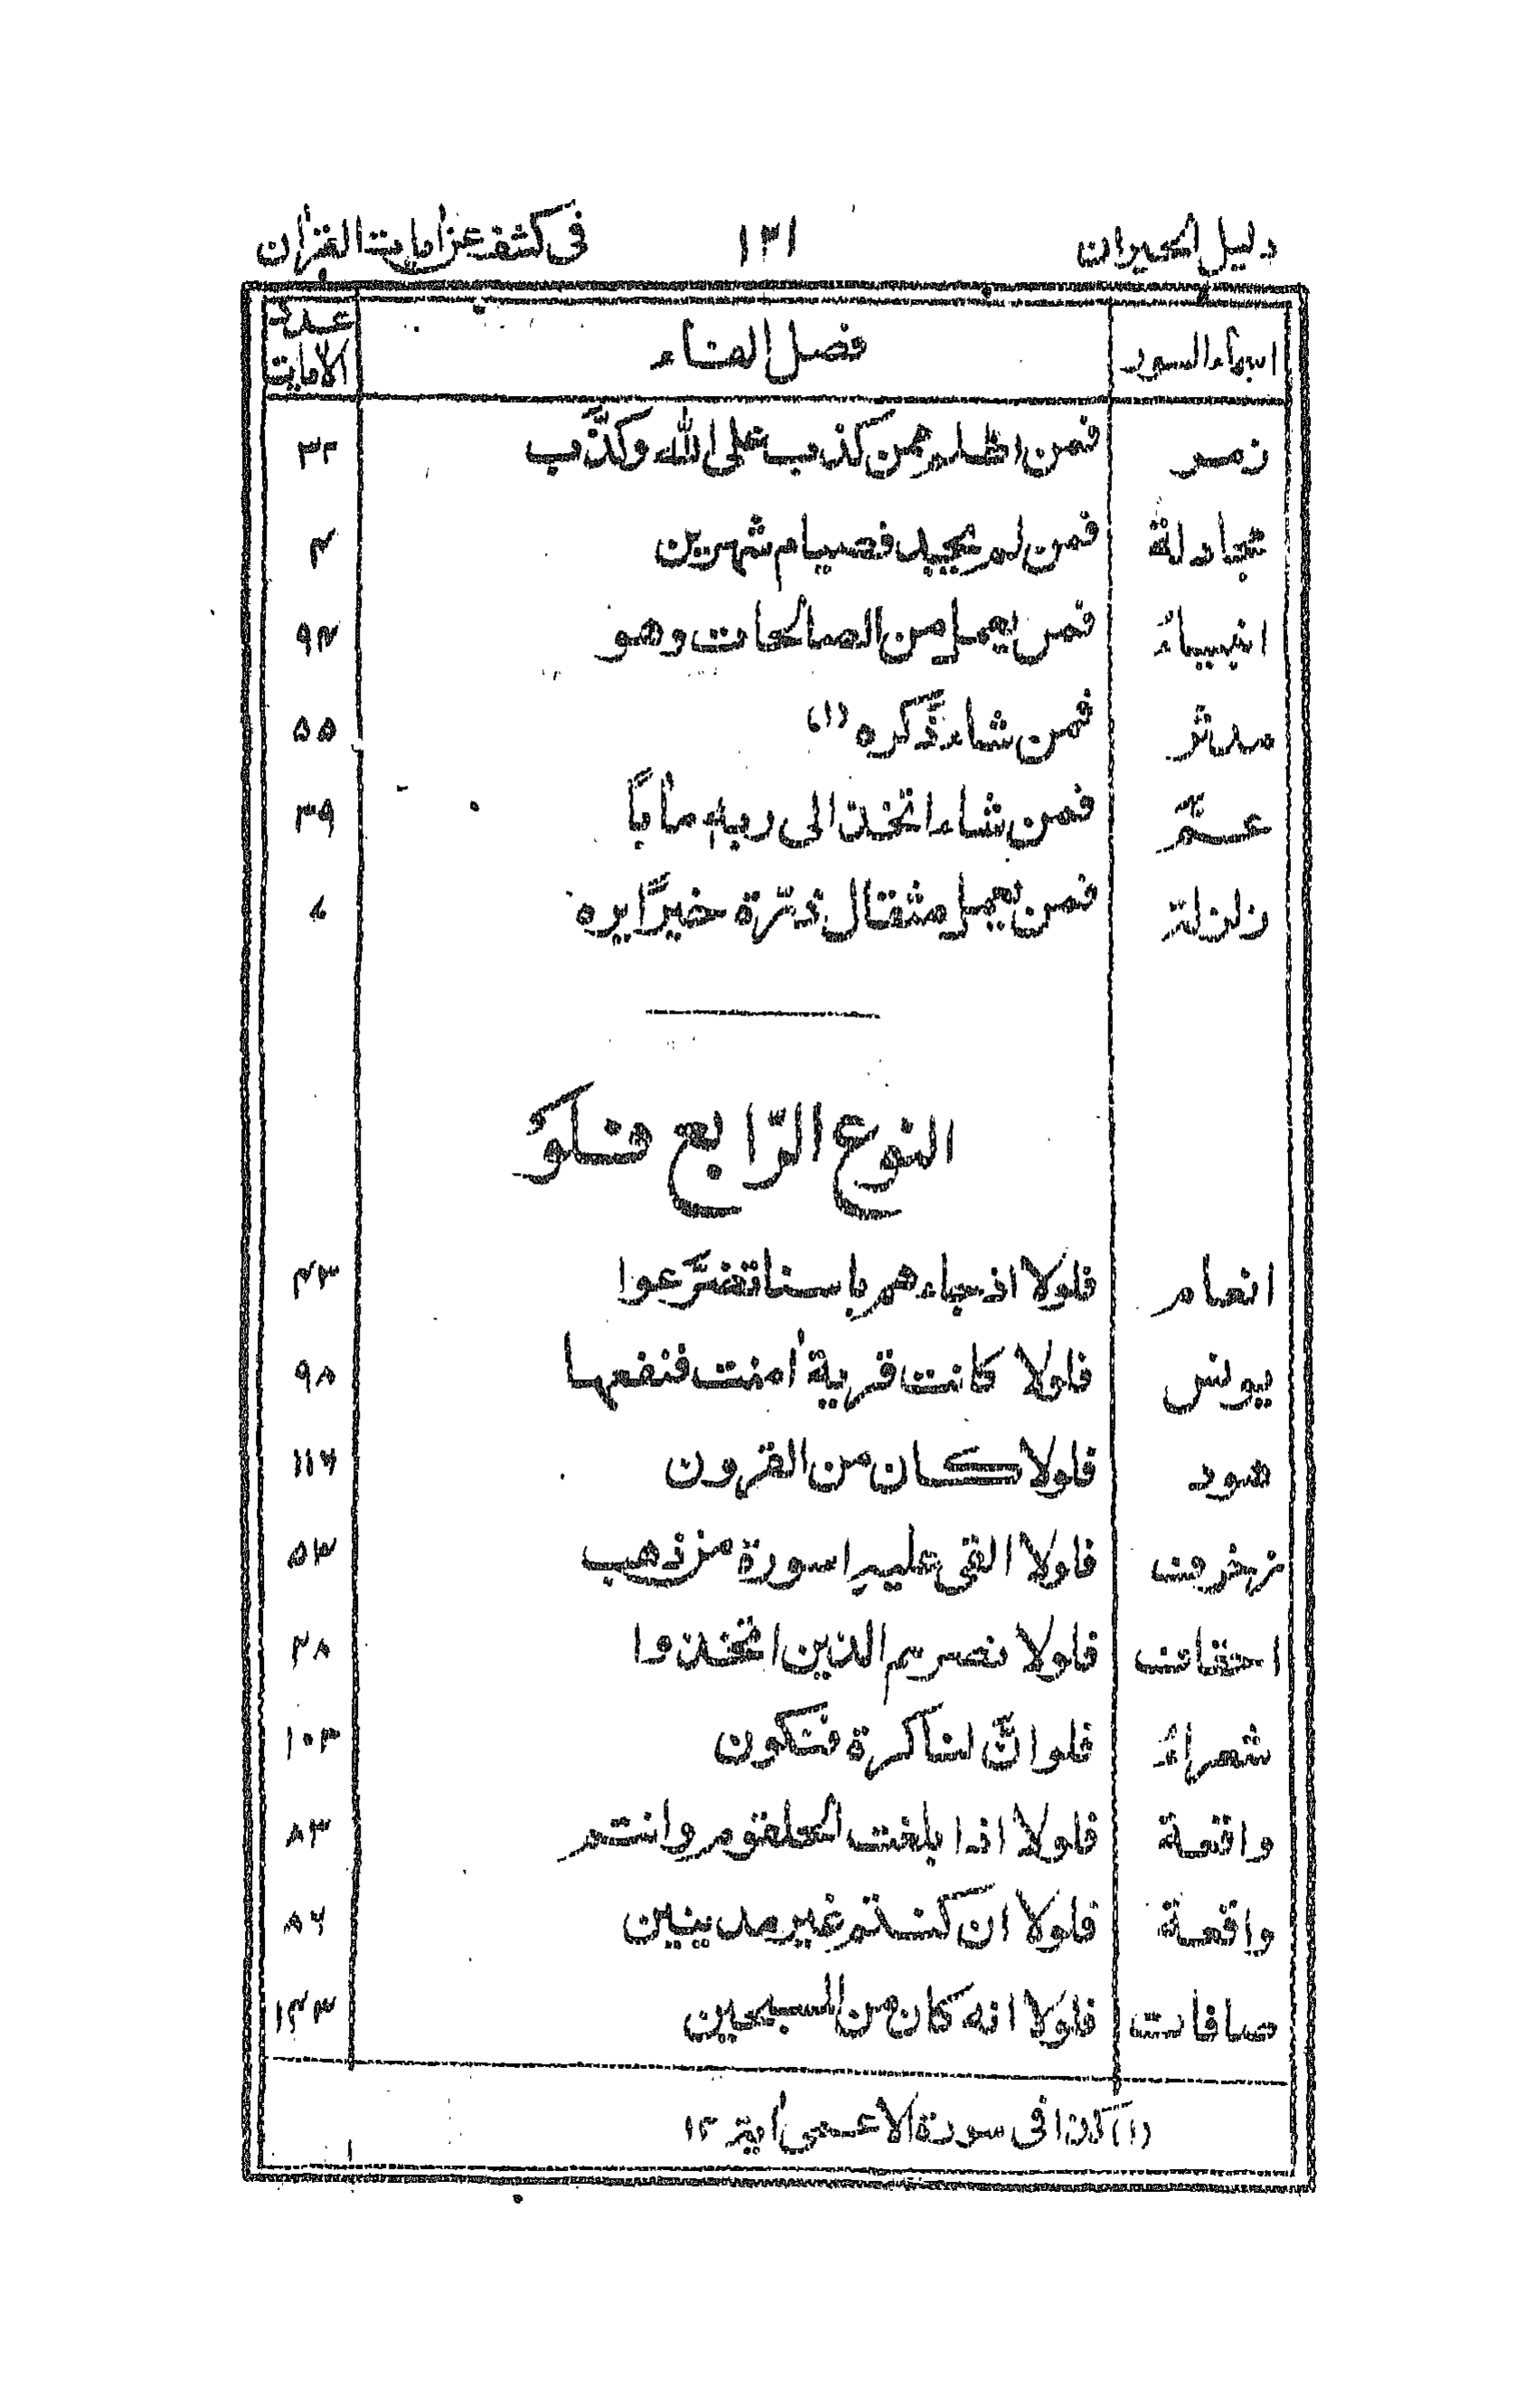 دليل الحيران ١٣١ فى كشف عن اٰيات القراٰن
اسماء السور فصل الفاء عدد الاٰيات
زمر فمن اظلم ممن كذب على الله وكذّب ٣٢
مجادلة فمن لم يجد فصيام شهرين ۴
انبياءُ فمن يعمل من الصالحات وهو ٩۴
مدثر فمن شاء ذكره (١) ۵۵
عمّ فمن شاء اتخذ الى ربه ماٰباً ٣٩
زلزلة فمن يعمل مثقال ذرّة خيرًا يره ٨
النوع الرّابع فلوْ
انعام فلولا اذ جاءهم باسنا تضرّعوا ۴٣
يونس فلولا كانت قرية اٰمنت فنفعها ٩٨
هود فلولا كان من القرون ١١٦
زخرف فلولا القى عليه اسورة من ذهب ۵٣
احقاف فلولا نصرهم الذين اتخذوا ٢٨
شعراءُ فلو انّ لنا كرة فنكون ١٠٢
واقعة فلولا اذا بلغت الحلقوم وانتم ٨٣
واقعة فلولا ان كنتم غير مدينين ٨٦
صافات فلولا انه كان من المسبحين ١۴٣
(١) كذا فى سورة الاعمى اٰية ١٢